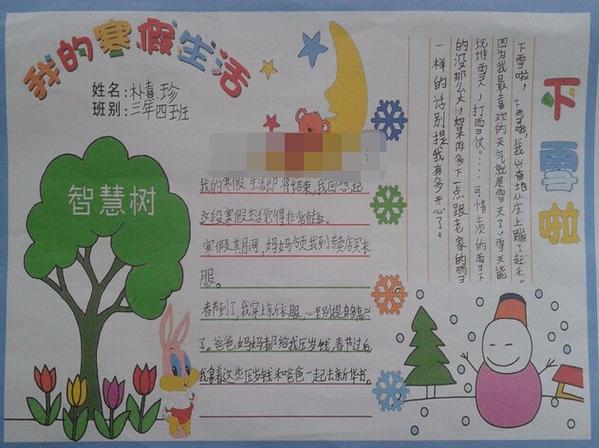 我的寒假生活
姓名:朴喜珍
班别:三年四班
智慧树
我的寒假生活即将结束,我回想起
这段寒假生活觉得非常
寒假其月间,妈妈领我到专卖店买衣
服。
春节到了,我穿上新衣服,心里别提有多高兴
了。爸爸,妈妈都给我压岁钱,春节过后
我拿着这些压岁钱和爸爸一起去新华书。
下雪啦
下雪啦,下雪哦,我兴奋地从床上蹦了起来。
因为我最喜欢的天气就是雪天了。雪天能
玩堆雪人,打雪仗……可惜上海的雪下
的没那么大,如果再多下一点跟老家的雪
一样的话别提我有多开心了。